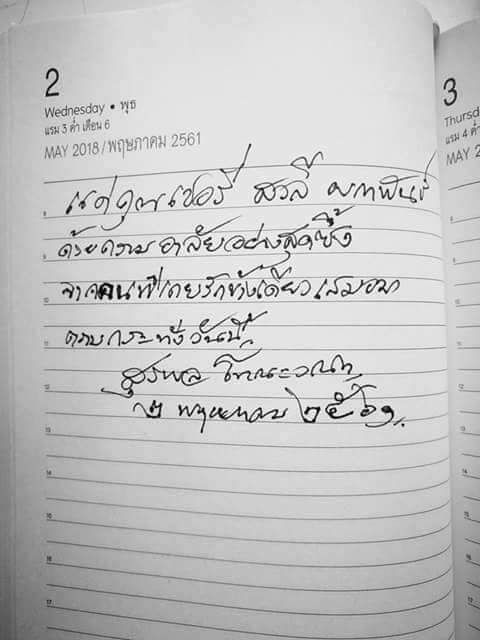 2
Wednesday • พุธ
แรม 3 ค่ำ เดือน 6
MAY 2018/พฤษภาคม 2561
แด่คุณเชอรี่ สวลี ผกาพันธุ์
ด้วยความอาลัยอย่างสุดซึ้ง
จากคนที่เคยรักข้างเดียวเสมอมา
ตราบกระทั่งวันนี้
สุรพล โทณะวณิก
๒ พฤษภาคม ๒๕๖๑.
8
9
10
11
12
13
14
15
16
17
3
Thursd
แรม 4 ค่ำ
MAY 2